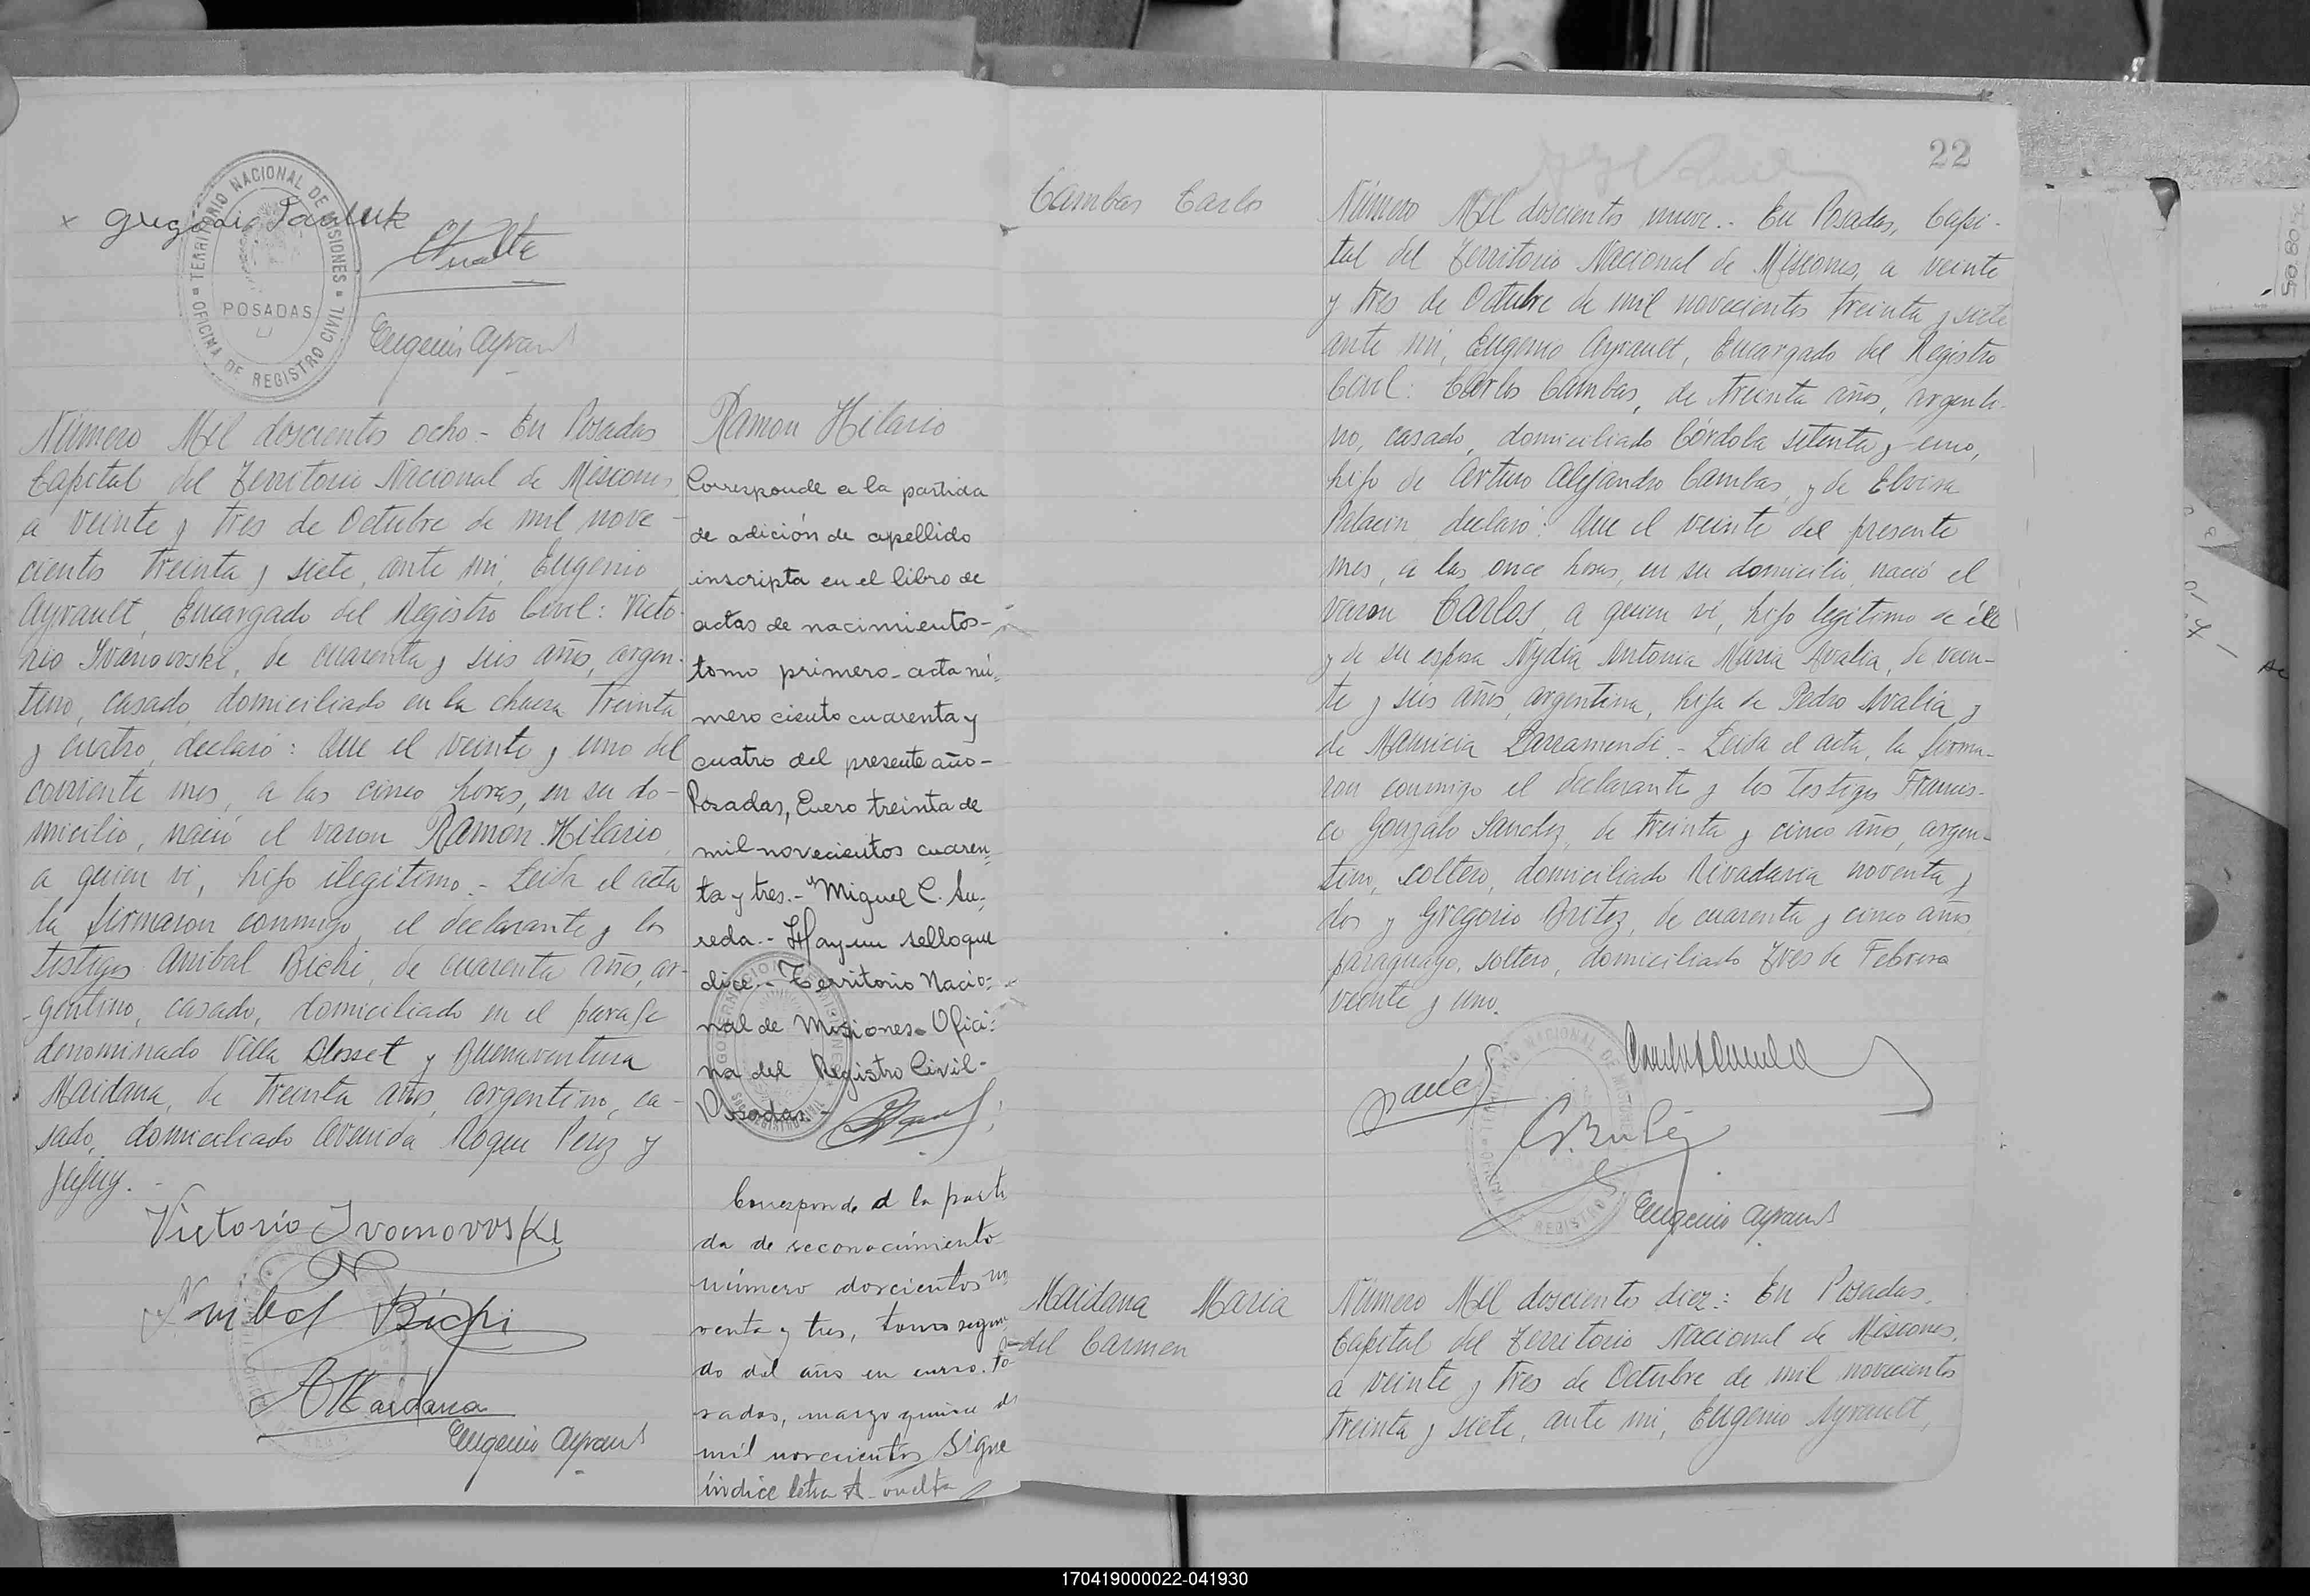 Gregorio Pauluk
TERRITORIO NACIONAL DE MISIONES
POSADAS
OFICINA DE REGISTRO CIVIL
Eugenio Ayrault
Número Mil doscientos ocho - En Posadas
Capital del Territorio Nacional de Misiones,
a veinte y tres de Octubre de mil nove-
cientos treinta y siete, ante mi, Eugenio
Ayrault, Encargado del Registro Civil: Victo-
rio Ivanovoski, de cuarenta y seis años, argen-
tino, casado, domiciliado en la chacra treinta
y cuatro, declaró: Que el veinte y uno del
corriente mes, a las cinco horas, en su do-
micilio, nació el varon Ramon Hilario,
a quien vi, hijo ilegitimo.- Leida el acta
la firmaron conmigo, el declarante y los
testigos Anibal Bichi, de cuarenta años, ar-
gentino, casado, domiciliado en el paraje
denominado Villa Blosset y Buenaventura
Maidana, de treinta años, argentino, ca-
sado, domiciliado Avenida Roque Perez y
Jujuy.-
Victorio Ivomovoski
Anibal Bichi
Maidana
Eugenio Ayrault
Ramon Hilario
Corresponde a la partida
de adición de apellido
inscripta en el libro de
actas de nacimientos-
tomo primero-acta nú-
mero ciento cuarenta y
cuatro del presente año-
Posadas, Enero treinta de
mil novecientos cuaren-
ta y tres.- Miguel C. Su-
reda.- Hay un sello que
dice.- Territorio Nacio-
nal de Misiones- Ofici-
na del Registro Civil-
Posadas-
Corresponde a la parti
da de reconocimiento
número doscientos no
venta y tres, tomo segun
do del año en curso. Po
sadas, marzo quince de
mil novecientos sigue
índice letra A-vuelta
22
Cambas Carlos
Número Mil doscientos nueve.- En Posadas, Capi-
tal del Territorio Nacional de Misiones, a veinte
y tres de Octubre de mil novecientos treinta y siete
ante mi, Eugenio Ayrault, Encargado del Registro
Civil: Carlos Cambas, de treinta años, argenti-
no, casado, domiciliado Córdoba setenta y uno,
hijo de Arturo Alejandro Cambas, y de Elvira
Palacin, declaró: Que el veinte del presente
mes, a las once horas, en su domicilio, nació el
varon Carlos, a quien vi, hijo legitimo de él
y de su esposa Nydia Antonia Maria Avalia, de vein-
te y seis años, argentina, hija de Pedro Avalia y
de Mauricia Larramendi.- Leida el acta, la firma-
ron conmigo el declarante y los testigos Francis-
co Gonzalo Sanchez, de treinta y cinco años, argen-
tino, soltero, domiciliado Rivadavia noventa y
dos y Gregorio Britez, de cuarenta y cinco años,
paraguayo, soltero, domiciliado Tres de Febrero
veinte y uno.
Eugenio Ayrault
Maidana Maria
del Carmen
Número Mil doscientos diez: En Posadas,
Capital del Territorio Nacional de Misiones,
a veinte y tres de Octubre de mil novecientos
treinta y siete, ante mi, Eugenio Ayrault,
170419000022-041930